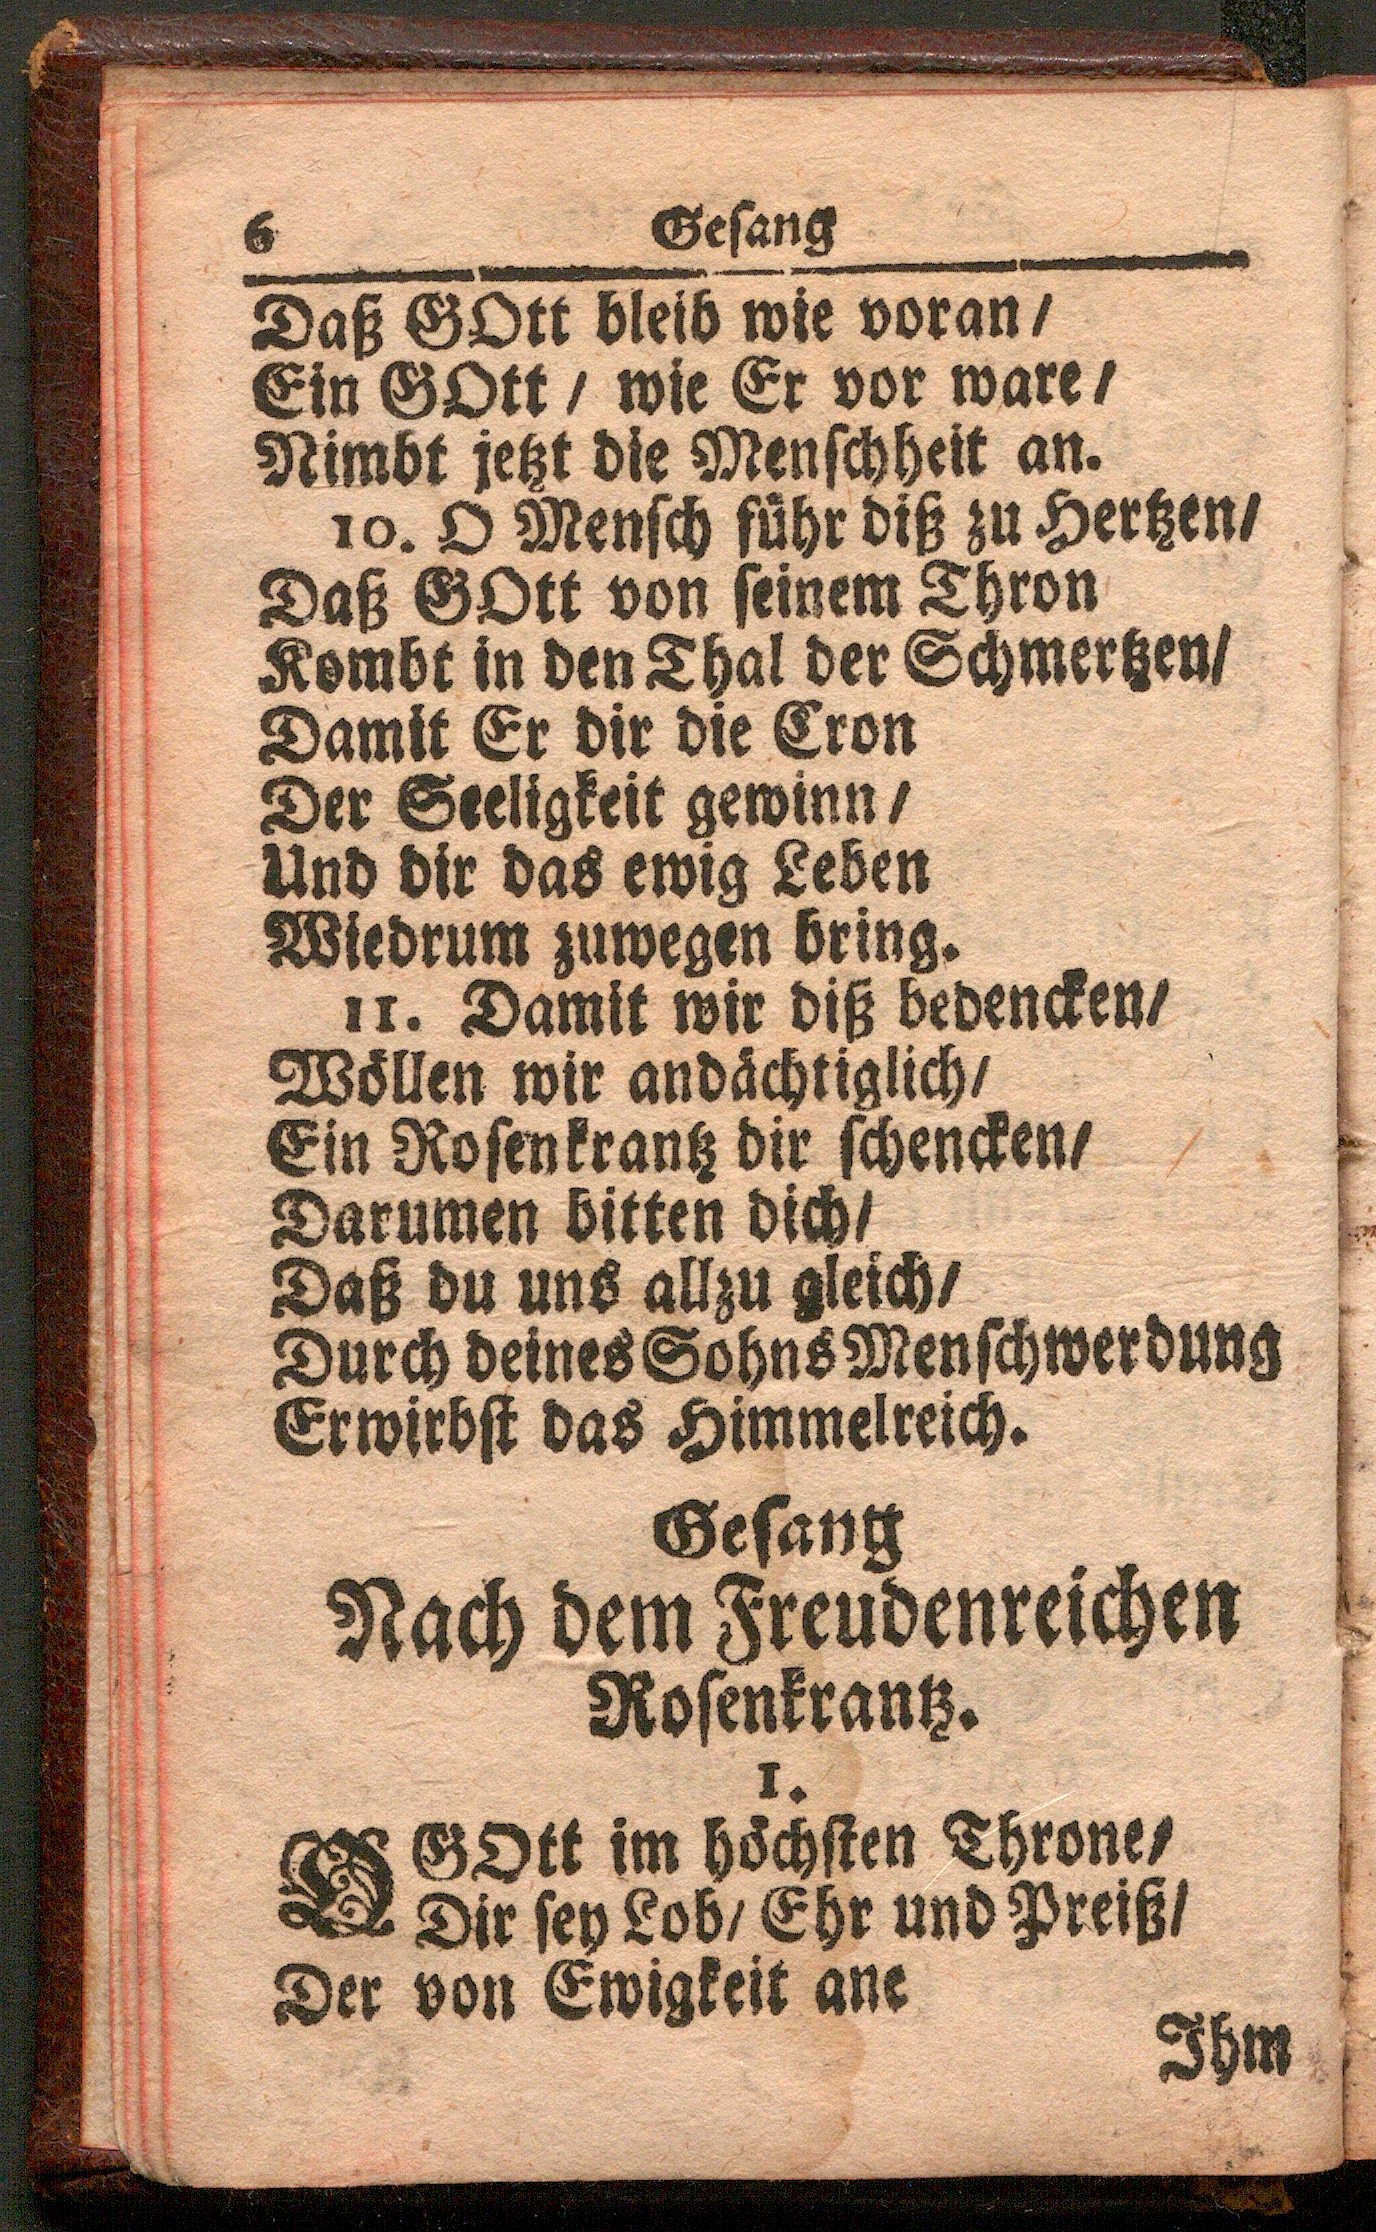 6 Gesang
Daß GOtt bleib wie voran/
Ein GOtt / wie Er vor ware/
Nimbt jetzt die Menschheit an.
10. O Mensch führ diß zu Hertzen/
Daß GOtt von seinem Thron
Kombt in den Thal der Schmertzen/
Damit Er dir die Cron
Der Seeligkeit gewinn/
Und dir das ewig Leben
Wiedrum zuwegen bring.
11. Damit wir diß bedencken/
Wöllen wir andächtiglich/
Ein Rosenkrantz dir schencken/
Darumen bitten dich/
Daß du uns allzu gleich/
Durch deines Sohns Menschwerdung
Erwirbst das Himmelreich.
Gesang
Nach dem Freudenreichen
Rosenkrantz.
1.
O GOtt im höchsten Throne/
Dir sey Lob/ Ehr und Preiß/
Der von Ewigkeit ane
Ihm